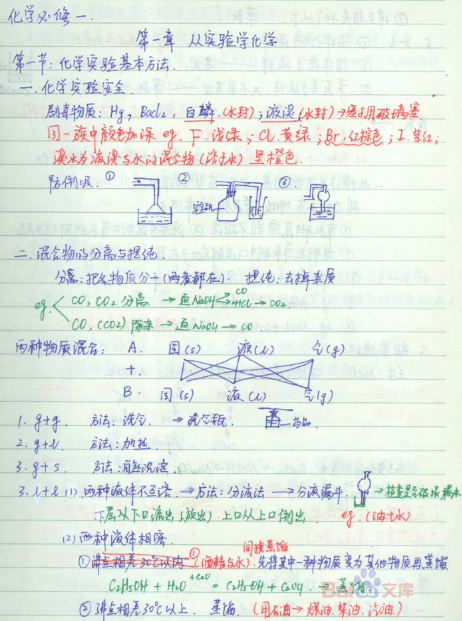 化学必修一.
第一章 从实验学化学
第一节:化学实验基本方法.
一.化学实验安全
剧毒物质: Hg, BaCl₂, 白磷(水封);液溴(水封)→用玻璃塞
同一族中颜色加深 eg. F.浅绿; Cl.黄绿; Br.红棕色; I.紫红;
溴水为液溴与水的混合物(溶于水) 黑橙色.
防倒吸: ① ② ③
二.混合物的分离与提纯.
分离:把各物质分开(两者都在). 提纯:去掉杂质
eg. CO, CO₂ 分离 → 通NaOH CO +HCl→CO₂.
CO, (CO₂) 除杂 → 通NaOH → CO
两种物质混合: A. 固(s) 液(l) 气(g)
+
B. 固(s) 液(l) 气(g)
1. g+g. 方法:洗气. → 洗气瓶. 药品
2. g+l. 方法:加热.
3. g+s. 方法:自然沉淀
3. l+l (1) 两种液体不互溶 → 方法:分液法 → 分液漏斗. →检查是否破损漏水
下层从下口流出(放出) 上口从上口倒出. eg. (油+水)
(2) 两种液体相溶. 间接蒸馏
①沸点相差30℃以内 (酒精与水) 先将其中一种物质变为其他物质再蒸馏.
C₂H₅OH + H₂O +CaO = C₂H₅OH + CaOH → 蒸馏
②沸点相差30℃以上. 蒸馏. (用石油→煤油.柴油.汽油)
Baidu文库